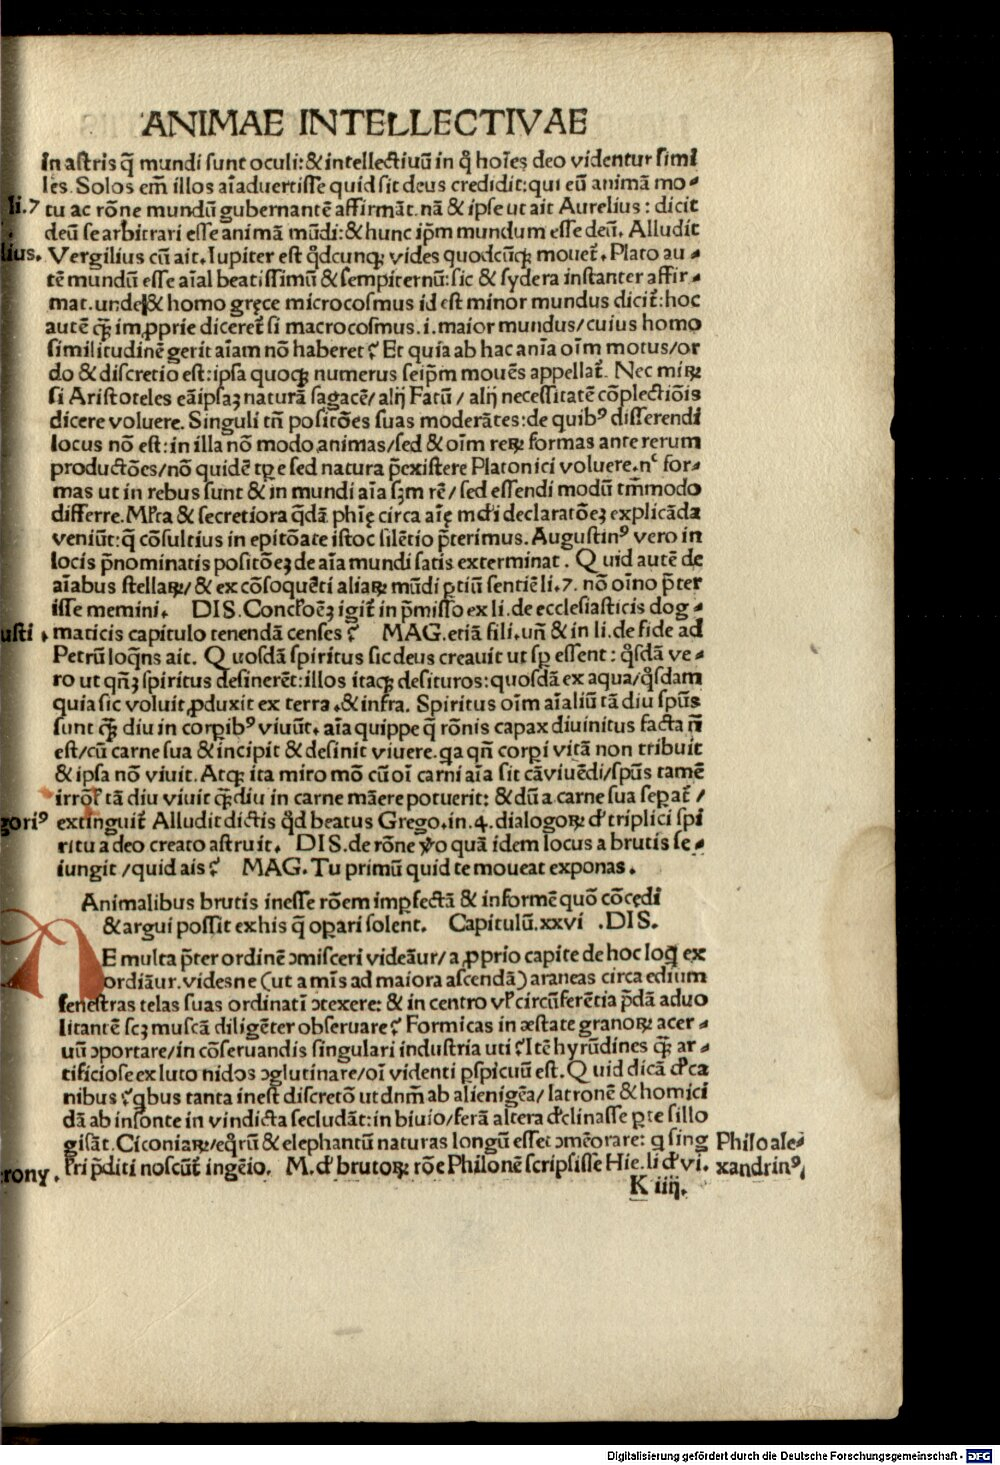 ANIMAE INTELLECTIVAE
In astris q̄ mundi sunt oculi: & intellectiuū in q̊ hoīes deo videntur simi
les. Solos em̄ illos aīaduertisse quid sit deus credidit: qui eū animā mo⸗
li.7 tu ac rōne mundū gubernantē affirmāt. nā & ipse ut ait Aurelius: dicit
deū se arbitrari esse animā mūdi: & hunc ip̄m mundum esse deū. Alludit
lius. Vergilius cū ait. Iupiter est q̊dcunqꝫ vides quodcūqꝫ mouet᷑. Plato au⸗
tē mundū esse aīal beatissimū & sempiternū: sic & sydera instanter affir⸗
mat. unde & homo gręce microcosmus id est minor mundus dicit᷑: hoc
autē qꝫ̄ imꝓprie diceret᷑ si macrocosmus .i. maior mundus/cuius homo
similitudinē gerit aīam nō haberet? Et quia ab hac anīa oīm motus/or
do & discretio est: ipsa quoqꝫ numerus seip̄m mouēs appellat᷑. Nec mirꝝ
si Aristoteles eāipsaꝫ naturā sagacē/ alij Fatū / alij necessitatē cōplectiōis
dicere voluere. Singuli tn̄ positōes suas moderātes: de quibꝰ differendi
locus nō est: in illa nō modo animas/sed & oīm reꝝ formas ante rerum
productōes/nō quidē tꝑe sed natura p̄existere Platonici voluere. nͨ for⸗
mas ut in rebus sunt & in mundi aīa sꝫm rē/ sed essendi modū tm̄modo
differre. Ml̓ta & secretiora q̄dā phīę circa aīę mdi̓ declaratōeꝫ explicāda
veniūt: q̄ cōsultius in epitōate istoc silētio p̄terimus. Augustinꝰ vero in
locis p̄nominatis positōeꝫ de aīa mundi satis exterminat. Quid autē de
aīabus stellaꝝ/ & ex cōsoquēti aliaꝝ mūdi ꝑtiū sentiē li.7. nō oīno p̄ter
isse memini. DIS. Concl̓oēꝫ igit᷑ in p̄misso ex li. de ecclesiasticis dog⸗
usti . maticis capitulo tenendā censes? MAG. etiā fili. un̄ & in li. de fide ad
Petrū loq̄ns ait. Quosdā spiritus sic deus creauit ut sꝑ essent: q̊sdā ve⸗
ro ut qn̄ꝫ spiritus desinerēt: illos itaqꝫ desituros: quosdā ex aqua/q̊sdam
quia sic voluit ꝓduxit ex terra. & infra. Spiritus oīm aīaliū tā diu sp̄us
sunt qꝫ̄ diu in corꝑibꝰ viuūt. aīa quippe q̄ rōnis capax diuinitus facta n̄
est/cū carne sua & incipit & desinit viuere. qa qn̄ corꝑi vitā non tribuit
& ipsa nō viuit. Atqꝫ ita miro mō cū oī carni aīa sit cā viuēdi/sp̄us tamē
irrōl̓ tā diu viuit qꝫ̄diu in carne māere potuerit: & dū a carne sua seꝑat᷑ /
goriꝰ extinguit᷑ Alludit dictis q̊d beatus Grego. in .4. dialogoꝝ d̓ triplici spi
ritu a deo creato astruit. DIS. de rōne v̓o quā idem locus a brutis se⸗
iungit /quid ais? MAG. Tu primū quid te moueat exponas.
Animalibus brutis inesse rōem imꝑfectā & informē quō cōcędi
& argui possit ex his q̄ oꝑari solent. Capitulū. xxvi .DIS.
AE multa p̄ter ordinē ɔmisceri videāur/ a ꝓprio capite de hoc loq̄ ex
ordiāur. videsne (ut a mīs ad maiora ascendā) araneas circa edium
fenestras telas suas ordinatī ɔtexere: & in centro vl̓ circūferētia p̄dā aduo
litantē scꝫ muscā diligēter obseruare? Formicas in æstate granoꝝ acer⸗
uū ɔportare/in cōseruandis singulari industria uti? Itē hyrūdines qꝫ̄ ar⸗
tificiose ex luto nidos ɔglutinare/oī videnti ꝑspicuū est. Quid dicā d̓ ca
nibus? qbus tanta inest discretō ut dnm̄ ab alienigēa/ latronē & homici
dā ab insonte in vindicta secludāt: in biuio/ferā altera d̓clinasse ꝑte sillo
gisāt. Ciconiaꝝ/eq̊rū & elephantū naturas longū esset ɔmēorare: q sing Philo ale⸗
rony . l̓ri p̄diti noscūt᷑ ingēio. M. d̓ brutoꝝ rōe Philonē scripsisse Hie. li d̓ vi. xandrinꝰ,
K iiij.
Digitalisierung gefördert durch die Deutsche Forschungsgemeinschaft - DFG